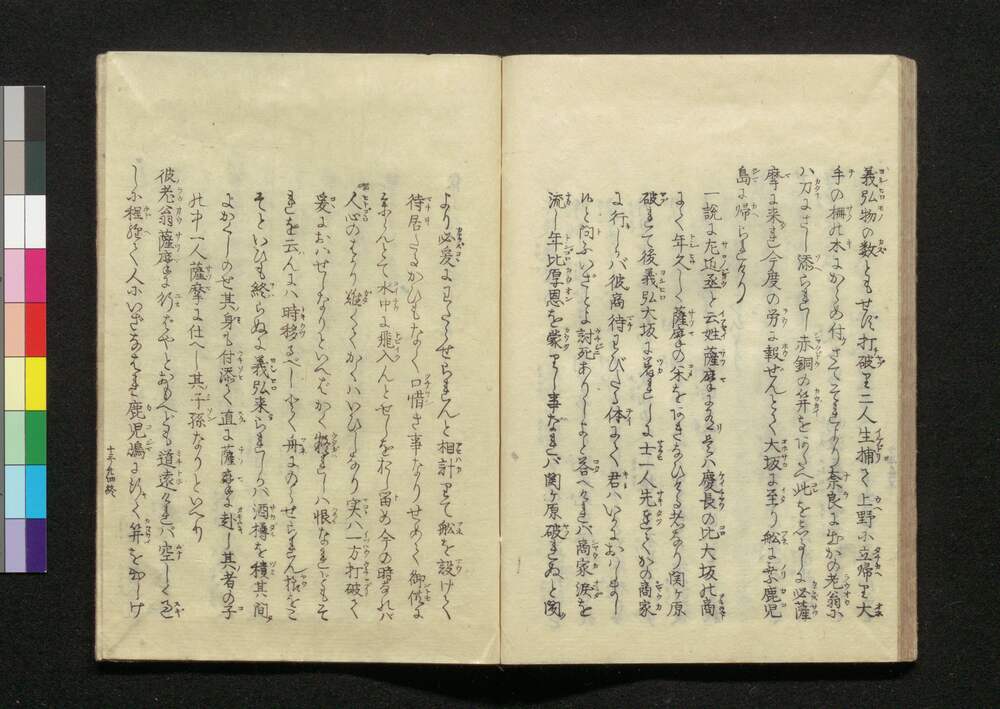 義弘物の数ともせず打破り二人生捕て上野に立帰り大
手の柵の木にからめ付さてそれより奈良に出かの老翁に
八刀にさし添られし赤銅の笄をあたへ此をしるしに必薩
摩に来れ今度の労に報ぜんとて大坂に至り船に乗鹿児
島に帰られけり
一説に左近丞と云姓薩摩に
なく年久しく薩摩の米をあきなひける者なり関ヶ原
破れて後義弘大坂に着れしに士一人先達てかの商家
に行しかバ彼商待わびたる体にて君ハいかにおハしまし
ぬと問ふいざとよ討死ありしよと答へけれバ商家涙を
流し年比厚恩を蒙りし事なれバ関ヶ原破れぬと聞
より必爰にわたらせられんと相計りて船を設けて
待居たるかひもなく口惜き事なりせめて御供
せんとて水中に飛入んとせしをおし留め今の時なれバ
人心のはかり難くてかくハいひしなり実ハ一方打破て
爰におはせしなりといへばかく擬れしハ恨なれどもそ
れを云んハ時移るべしとく舟にのらせられん
そといひも終らぬに義弘来られしかバ酒樽を積其間
によかくしのせ其身も付添て直に薩摩に赴し其者の子
の中一人薩摩に仕へし其子孫なりといへり
彼老翁薩摩に行ばやとおもへども道遠けれバ空しく過
しに程経て人にいざなはれ鹿児嶋にゆきて笄を出しけ